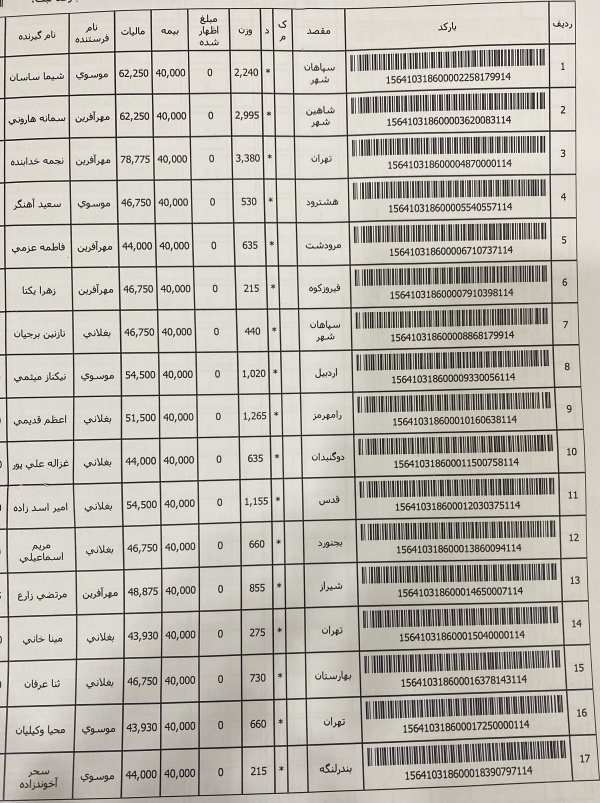 ردیف بارکد مقصد ک م د وزن مبلغ اظهار شده بیمه مالیات نام فرستنده نام گیرنده
1 156410318600002258179914 سپاهان شهر * 2,240 0 40,000 62,250 موسوي شیما ساسان
2 156410318600003620083114 شاهین شهر * 2,995 0 40,000 62,250 مهرآفرین سمانه هاروني
3 156410318600004870000114 تهران * 3,380 0 40,000 78,775 مهرآفرین نجمه خدابنده
4 156410318600005540557114 هشترود * 530 0 40,000 46,750 موسوي سعید آهنگر
5 156410318600006710737114 مرودشت * 635 0 40,000 44,000 مهرآفرین فاطمه عزمي
6 156410318600007910398114 فیروزکوه * 215 0 40,000 46,750 مهرآفرین زهرا یکتا
7 156410318600008868179914 سپاهان شهر * 440 0 40,000 46,750 بغلاني نازنین برجیان
8 156410318600009330056114 اردبیل * 1,020 0 40,000 54,500 موسوي نیکناز میثمي
9 156410318600010160638114 رامهرمز * 1,265 0 40,000 51,500 بغلاني اعظم قدیمي
10 156410318600011500758114 دوگنبدان * 635 0 40,000 44,000 بغلاني غزاله علي پور
11 156410318600012030375114 قدس * 1,155 0 40,000 54,500 بغلاني امیر اسد زاده
12 156410318600013860094114 بجنورد * 660 0 40,000 46,750 بغلاني مریم اسماعیلي
13 156410318600014650007114 شیراز * 855 0 40,000 48,875 مهرآفرین مرتضي زارع
14 156410318600015040000114 تهران * 275 0 40,000 43,930 بغلاني مینا خاني
15 156410318600016378143114 بهارستان * 730 0 40,000 46,750 بغلاني ثنا عرفان
16 156410318600017250000114 تهران * 660 0 40,000 43,930 موسوي محیا وکیلیان
17 156410318600018390797114 بندرلنگه * 215 0 40,000 44,000 موسوي سحر آخوندزاده